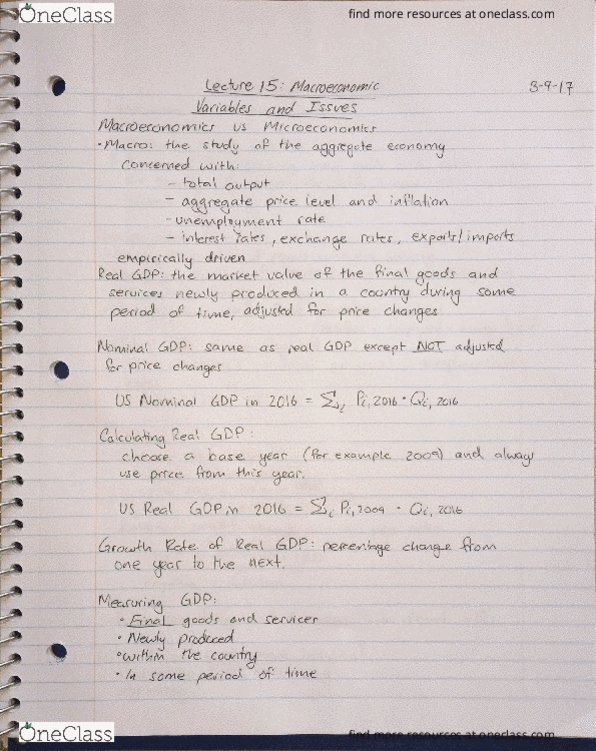 OneClass
find more resources at oneclass.com
Lecture 15: Macroeconomic
3-9-17
Variables and Issues
Macroeconomics vs Microeconomics
• Macro: the study of the aggregate economy
concerned with:
- total output
- aggregate price level and inflation
- unemployment rate
- interest rates, exchange rates, exports/imports
empirically driven
Real GDP: the market value of the final goods and
services newly produced in a country during some
period of time, adjusted for price changes
Nominal GDP: same as real GDP except NOT adjusted
for price changes
US Nominal GDP in 2016 = Σi Pi,2016 · Qi,2016
Calculating Real GDP:
choose a base year (for example 2009) and always
use price from this year.
US Real GDP in 2016 = Σi Pi,2009 · Qi,2016
Growth Rate of Real GDP: percentage change from
one year to the next.
Measuring GDP:
• Final goods and services
• Newly produced
• within the country
• In some period of time
OneClass
find more resources at oneclass.com